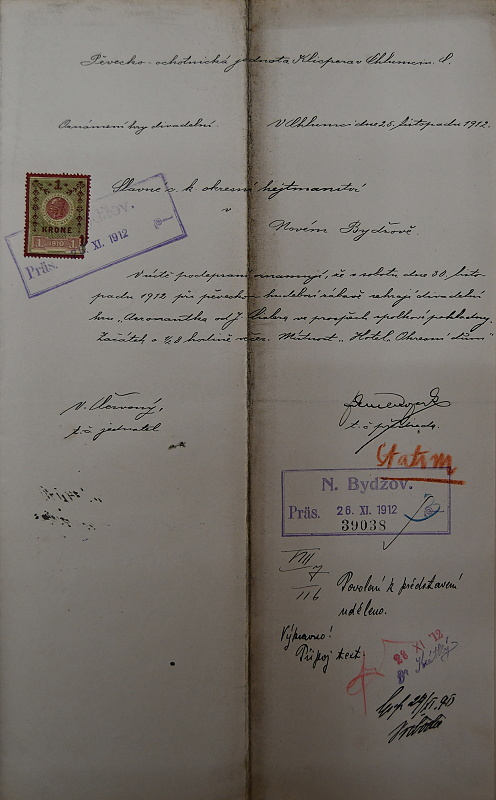 Pěvecko-ochotnická jednota Klicpera v Chlumci n. C.
Oznámení hry divadelní.
V Chlumci dne 25. listopadu 1912.
1
KRONE
1 1910 1
Slavné c. k. okresní hejtmanství
v
Novém Bydžově.
Präs. XI. 1912
V úctě podepsaní oznamují, že v sobotu dne 30. listo-
padu 1912 při pěvecko hudební zábavě sehrají divadelní
hru „Aeronautka" od J. ve prospěch spolkové pokladny.
Začátek o ½ 8 hodině večer. Místnost „Hotel Okresní dům"
V. Červený,
t. č. jednatel
t. č. předseda.
Statim
N. Bydžov.
Präs. 26. XI. 1912
39038
VIII
7
116
Povolení k představení
uděleno.
Výpravno!
Připoj text.
28 XI 12
Dr